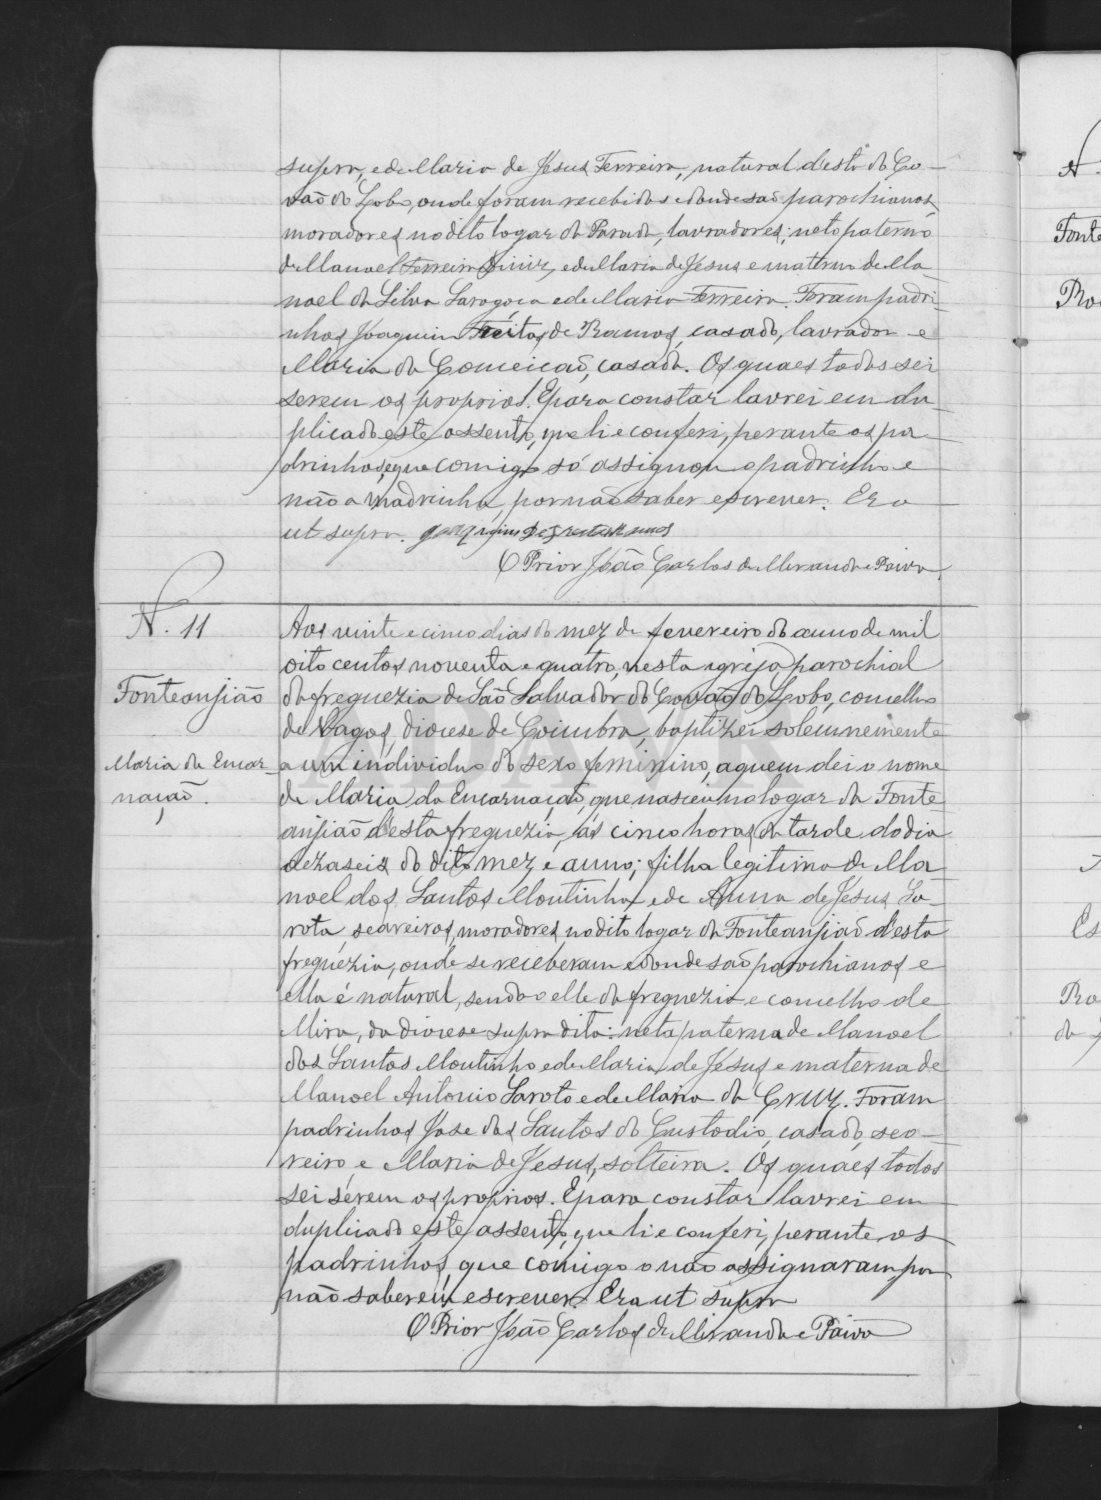 supra, e de Maria de Jesus Ferreira, natural d'esta do Co-
vão do Lobo, onde foram recebidos e donde são parochianos,
moradores no dito logar da Parada, lavradores; neto paterno
de Manoel Ferreira Diniz, e de Maria de Jesus e materno de Ma-
noel da Silva Saragoça e de Maria Ferreira. Foram padri-
nhos Joaquim Freitas de Ramos, casado, lavrador e
Maria da Conceição, casada. Os quaes todos sei
serem os proprios. E para constar lavrei em du-
plicado este assento, que li e conferi, perante os pa-
drinhos, e que comigo só assignou o padrinho e
não a madrinha, por não saber escrever. Era
ut supra. Joaquim
O Prior João Carlos de Miranda e Paiva.
N. 11
Fonteanjião
Maria da Encar-
nação.
Aos vinte e cinco dias do mez de fevereiro do anno de mil
oito centos noventa e quatro, nesta igreja parochial
da freguezia de São Salvador do Covão do Lobo, concelho
de Vagos, diocese de Coimbra, baptizei solemnemente
a um individuo do sexo feminino, a quem dei o nome
de Maria da Encarnação, que nasceu no logar da Fonte-
anjião d'esta freguezia, ás cinco horas da tarde do dia
dezaseis do dito mez e anno; filha legitima de Ma-
noel dos Santos Moutinho e de Anna de Jesus Sa-
rota, seareiros, moradores no dito logar da Fonteanjião d'esta
freguezia, onde se receberam e donde são parochianos e
ella é natural, sendo elle da freguezia e concelho de
Mira, da diocese supra dita: neta paterna de Manoel
dos Santos Moutinho e de Maria de Jesus e materna de
Manoel Antonio Saroto e de Maria da Cruz. Foram
padrinhos José dos Santos do Custodio, casado, sea-
reiro, e Maria de Jesus, solteira. Os quaes todos
sei serem os proprios. E para constar lavrei em
duplicado este assento, que li e conferi, perante os
padrinhos, que comigo o não assignaram, por
não saberem escrever. Era ut supra
O Prior João Carlos de Miranda e Paiva
ADAVR